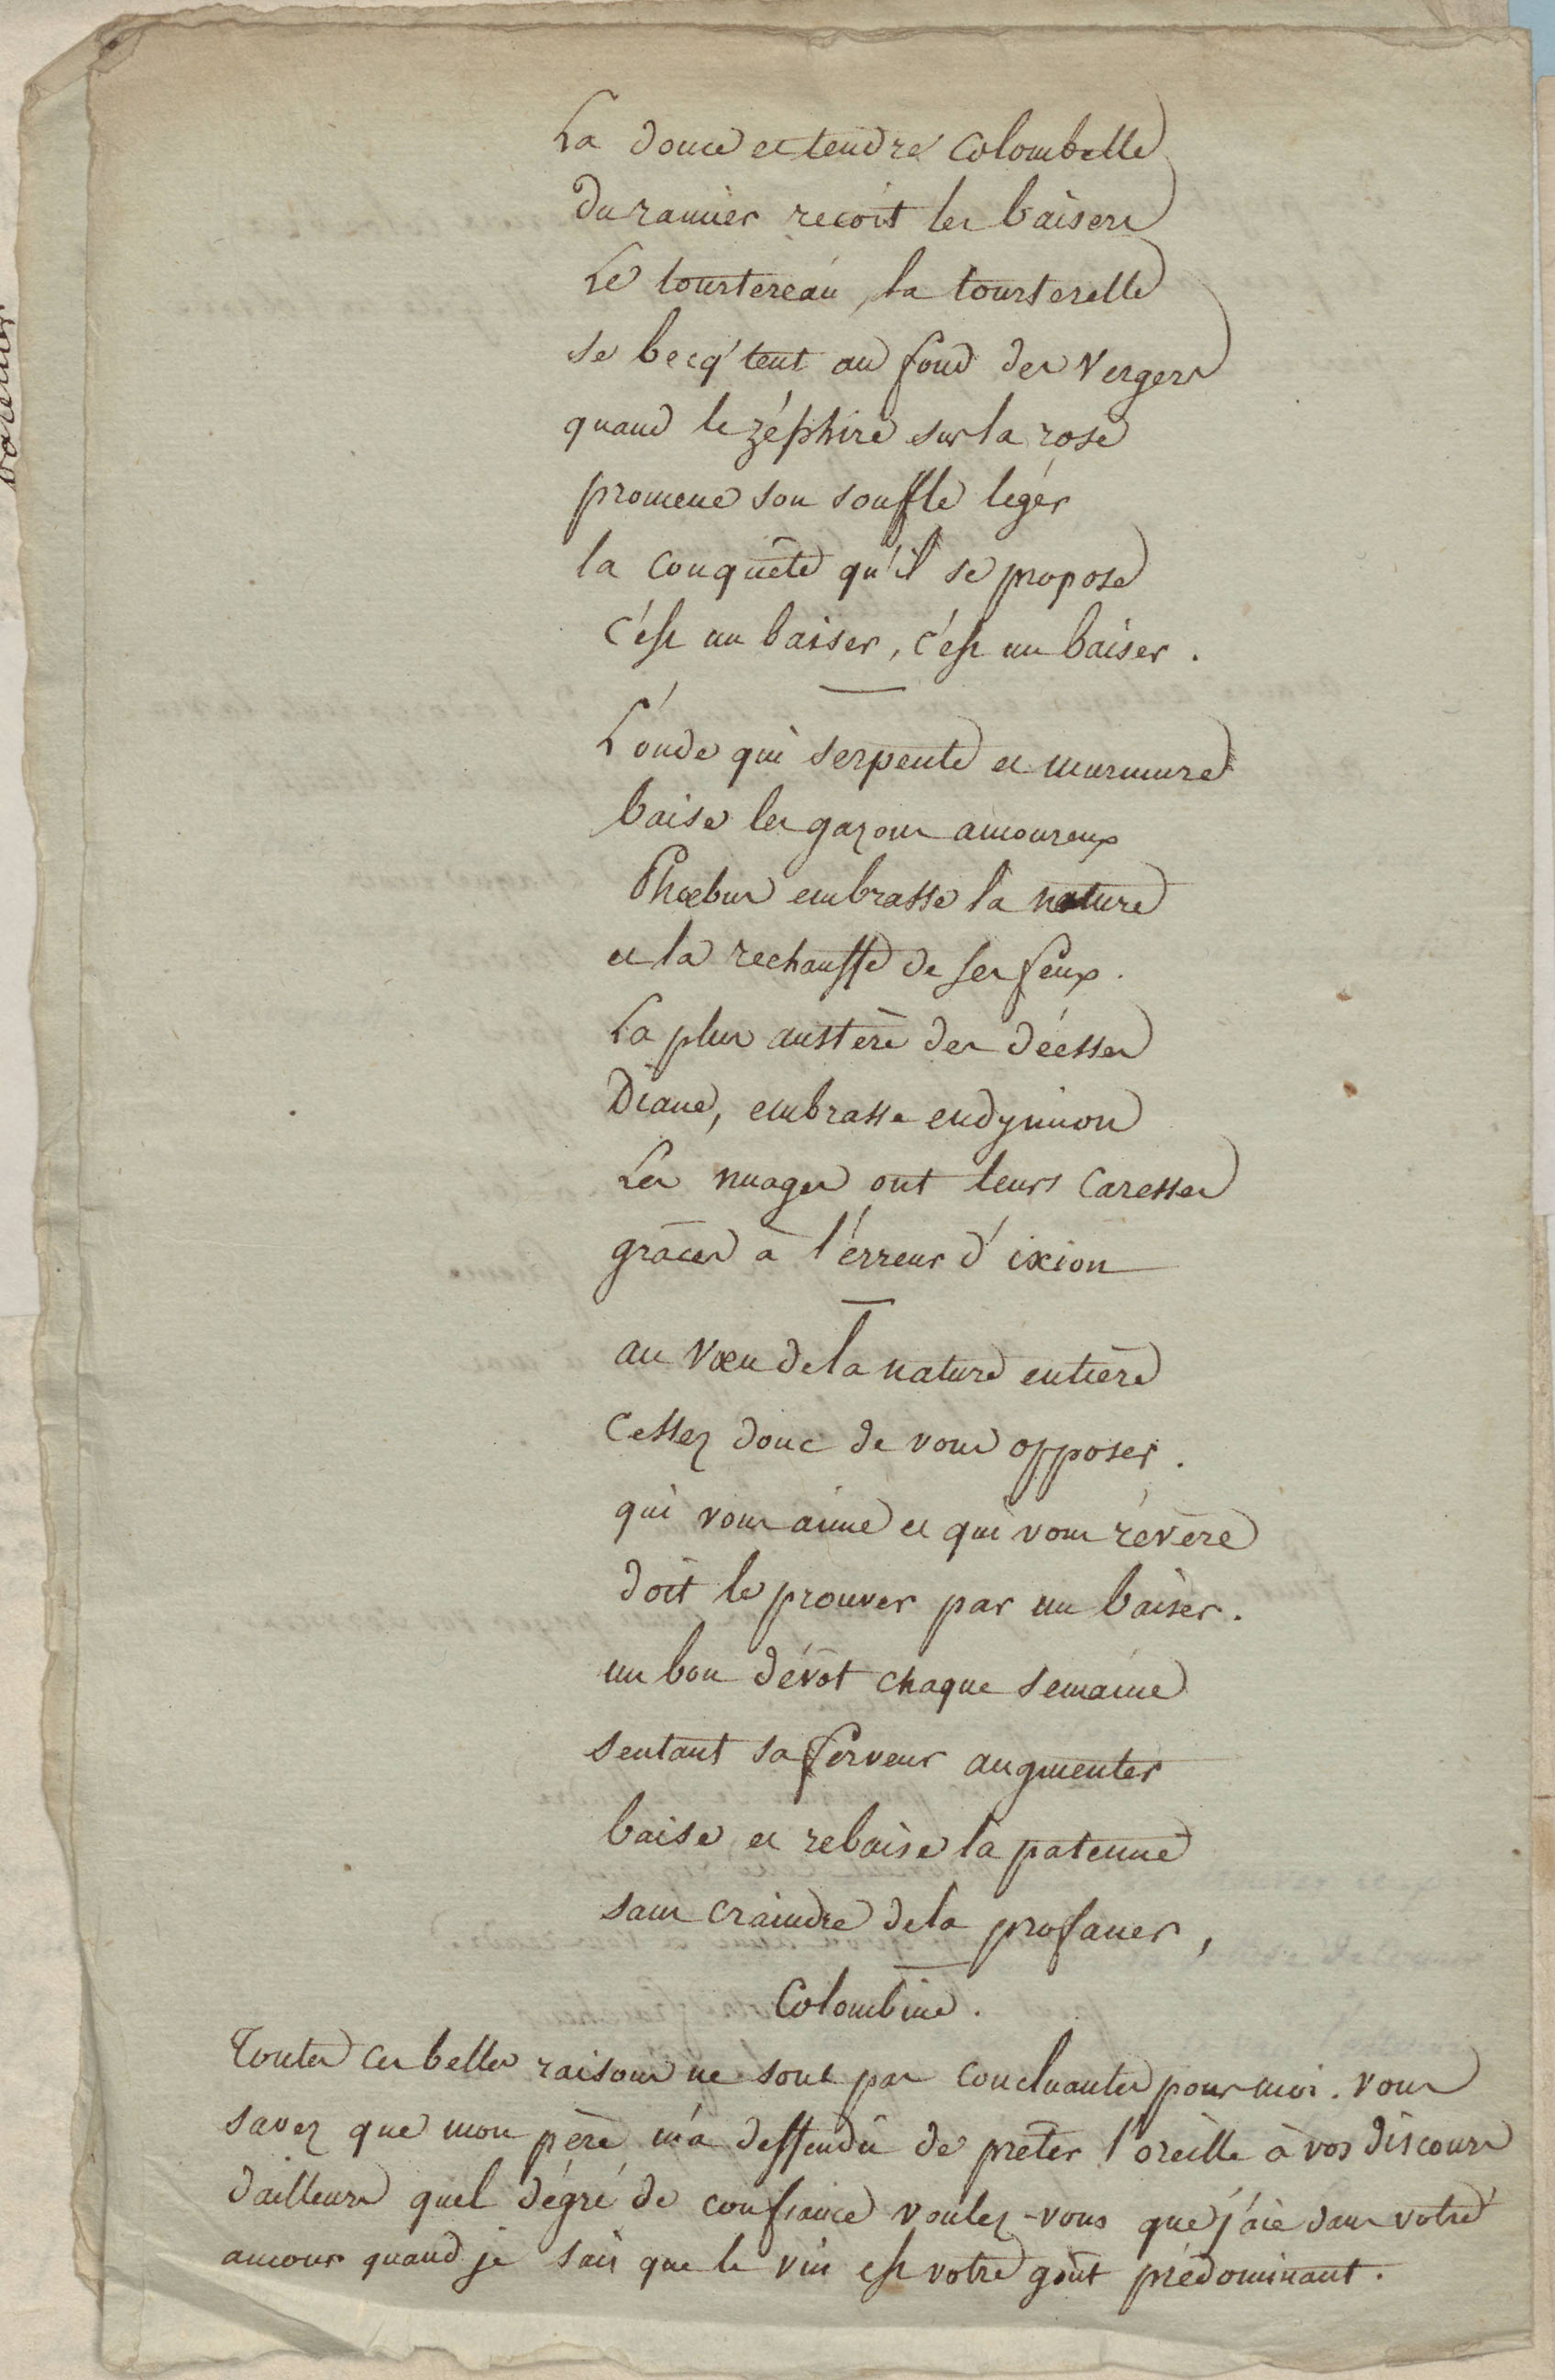 La douce et tendre Colombelle
du ramier recoit les baisers
Le tourtereau, la tourterelle
se becq'tent au fond des Vergers
quand le zéphire sur la rose
promene son souffle leger
la Conquête qu'il se propose
c'est un baiser, c'est un baiser.
L'onde qui serpente et murmure
baise les gazons amoureux
Phœbus embrasse la nature
et la rechauffe de ses feux.
La plus austère des déesses
Diane, embrasse endymion
Les nuages ont leurs Caresses
grâces à l'érreur d'ixion
au Vœu de la nature entière
Cessez donc de vous opposer.
qui vous aime et qui vous révère
doit le prouver par un baiser.
un bon dévôt chaque semaine
sentant sa ferveur augmenter
baise et rebaise la patenne
sans craindre de la profaner,
Colombine.
Toutes ces belles raisons ne sont pas concluantes pour moi. vous
savez que mon père m'a deffendu de prêter l'oreille à vos discours
dailleurs quel dégré de confiance voulez-vous que j'aie dans votre
amour quand je sais que le vin est votre goût prédominant.